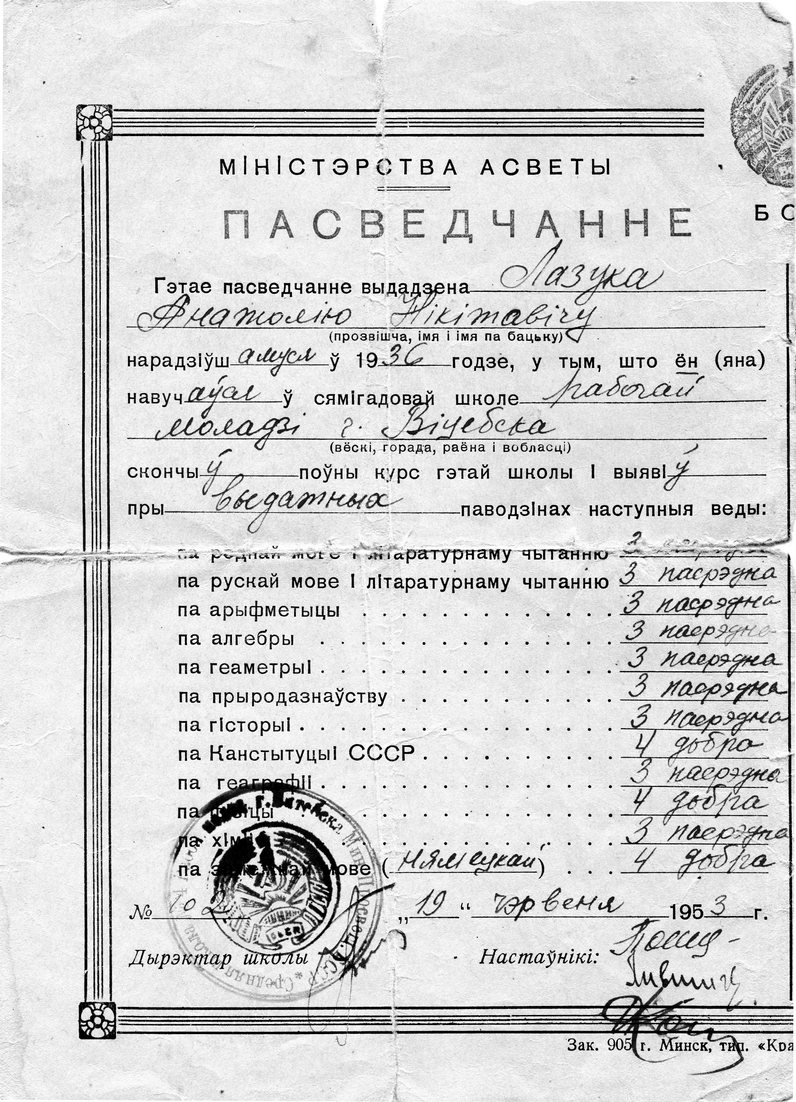 МІНІСТЭРСТВА АСВЕТЫ
БС
ПАСВЕДЧАННЕ
Гэтае пасведчанне выдадзена Лазука
Анатолію Нікітавічу
(прозвішча, імя і імя па бацьку)
нарадзіўш амуся ў 1936 годзе, у тым, што ён (яна)
навуч аўся ў сямігадовай школе рабочай
моладзі г. Віцебска
(вёскі, горада, раёна і вобласці)
скончыў поўны курс гэтай школы і выявіў
пры выдатных паводзінах наступныя веды:
па роднай мове і літаратурнаму чытанню 3
па рускай мове і літаратурнаму чытанню 3 пасрэдна
па арыфметыцы 3 пасрэдна
па алгебры 3 пасрэдна
па геаметрыі 3 пасрэдна
па прыродазнаўству 3 пасрэдна
па гісторыі 3 пасрэдна
па Канстытуцыі СССР 4 добра
па геаграфіі 3 пасрэдна
па 4 добра
па хіміі 3 пасрэдна
па мове (нямецкай) 4 добра
№ „19“ чэрвеня 1953 г.
Дырэктар школы Настаўнікі:
Зак. 905 г. Минск, тип. «Кра